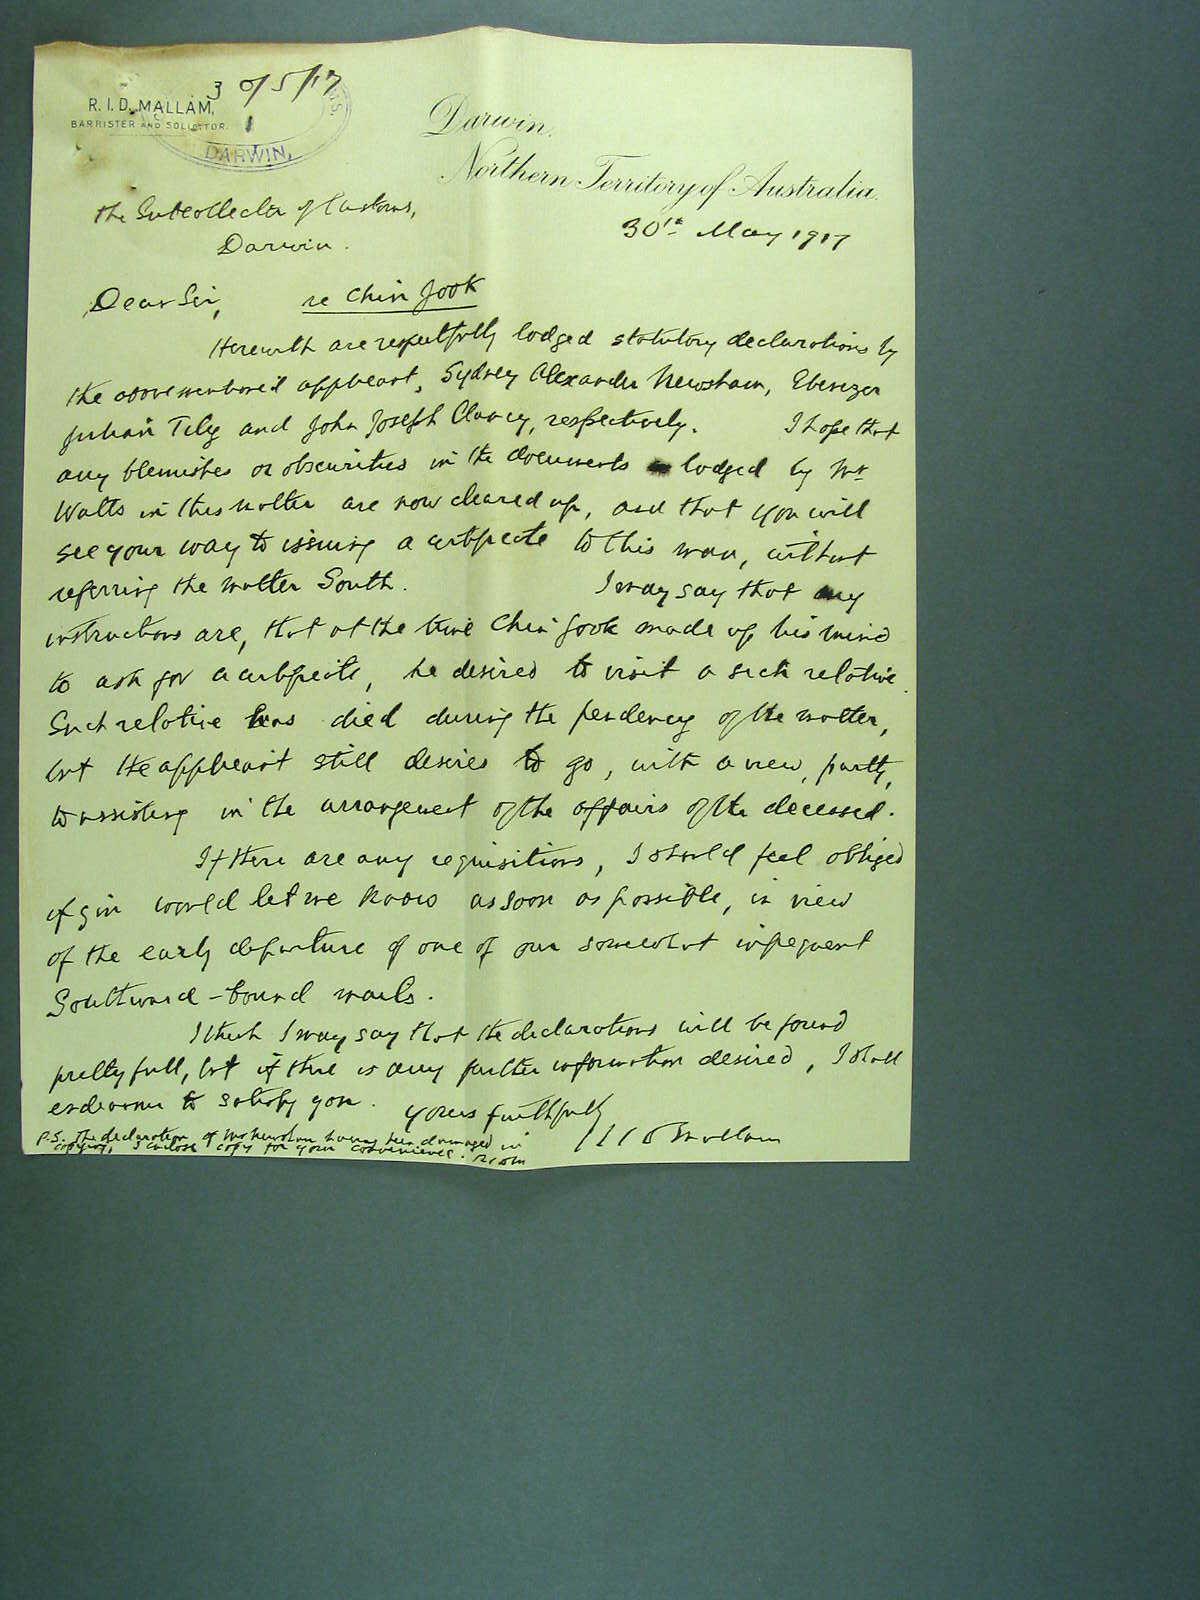 30/5/17
R. I. D. MALLAM,
BARRISTER AND SOLICITOR.
DARWIN.
Darwin.
Northern Territory of Australia.
30th May 1917
The Subcollector of Customs,
Darwin.
Dear Sir, re Chin Gook
Herewith are respectfully lodged statutory declarations by
the abovementioned applicant, Sydney Alexander Newsham, Ebenezer
Julian Tilly and John Joseph Clancy, respectively. I hope that
any blemishes or obscurities in the documents lodged by Mr
Watts in this matter are now cleared up, and that you will
see your way to issuing a certificate to this man, without
referring the matter South. I may say that my
instructions are, that at the time Chin Gook made up his mind
to ask for a certificate, he desired to visit a sick relative.
Such relative has died during the pendency of the matter,
but the applicant still desires to go, with a view, partly,
to assisting in the arrangement of the affairs of the deceased.
If there are any requisitions, I should feel obliged
if you would let me know as soon as possible, in view
of the early departure of one of our somewhat infrequent
Southward-bound mails.
I think I may say that the declarations will be found
pretty full, but if there is any further information desired, I shall
endeavour to satisfy you. Yours faithfully
R I D Mallam
P.S. The declaration of Mr Newsham having been damaged in
copying, I enclose copy for your convenience. RIDM